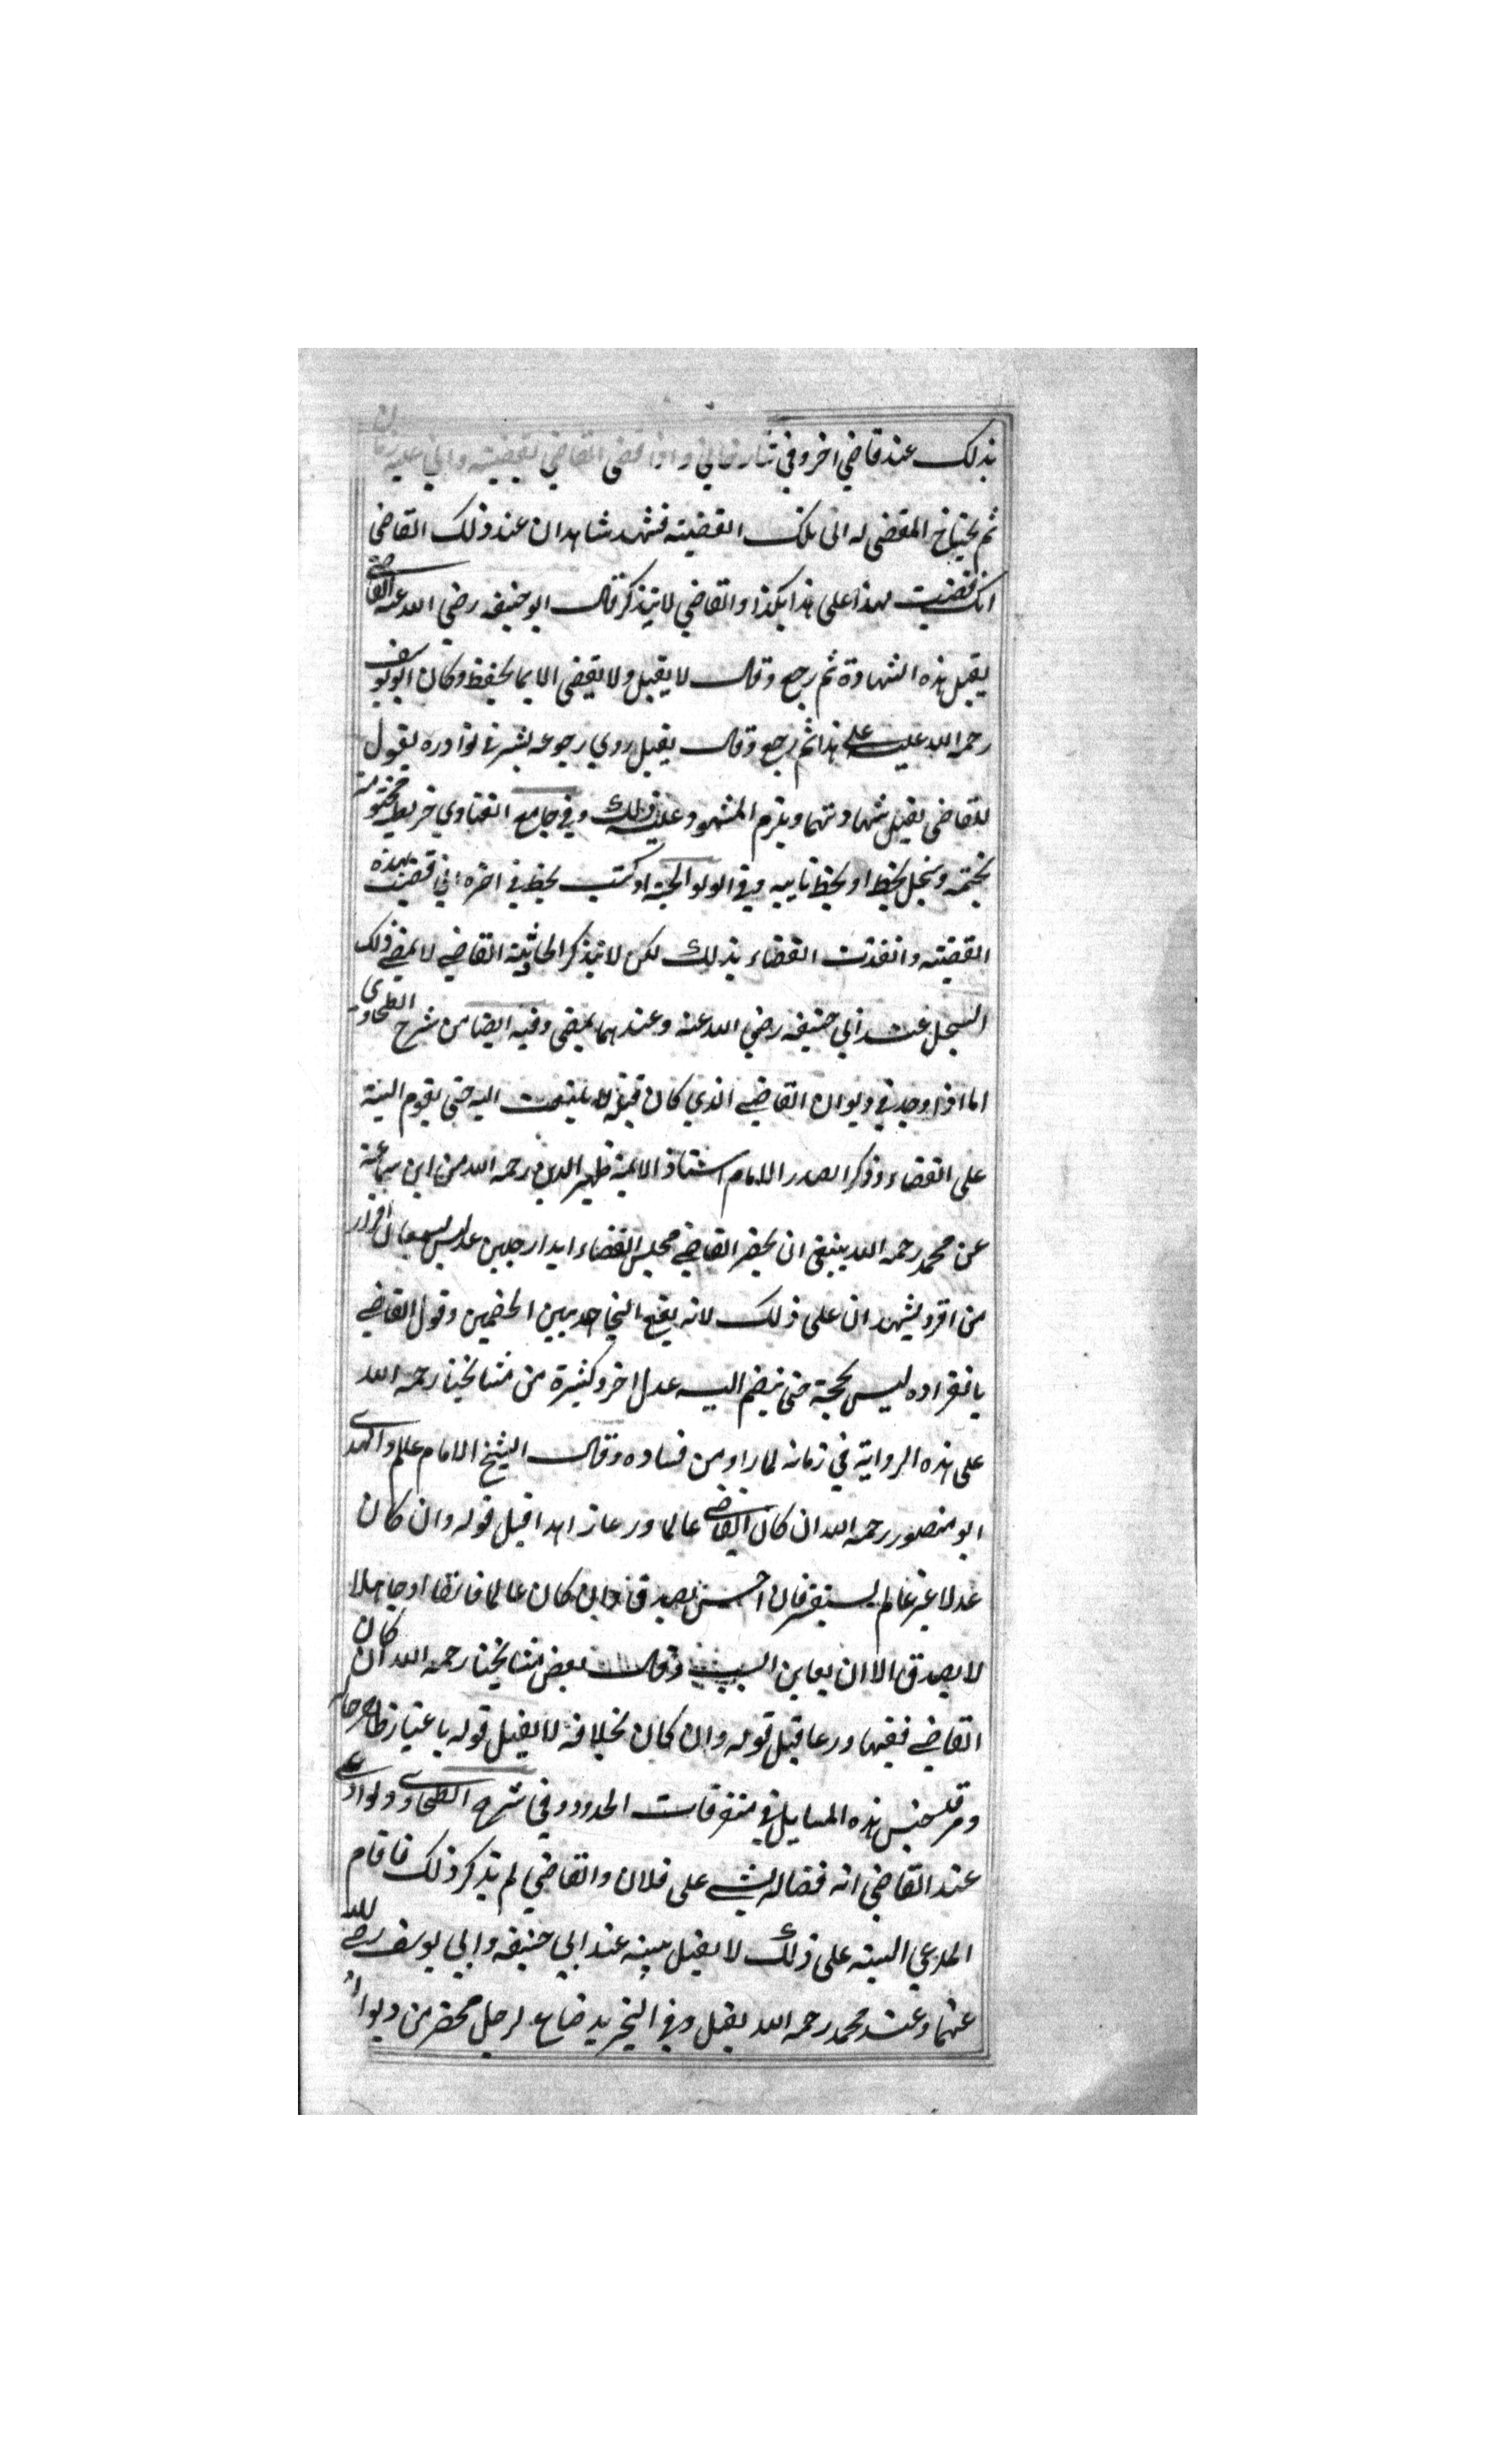 بذلك عند قاضي اخر وفي تتارخاني واذا قضى القاضي بقضيته واتى عليه زمان
ثم يحتاج المقضى له الى تلك القضيته فشهد شاهدان عند ذلك القاضى
انك قضيت لهذا على هذا بكذا والقاضي لا يتذكر قال ابو حنيفه رضى الله عنه القاضي
يقبل هذه الشهادة ثم رجع وقال لا يقبل ولا يقضى الا بما يحفظ وكان ابو يوسف
رحمه الله عليه على هذا ثم رجع وقال يقبل روي رجوعه بشر في نوادره يقول
للقاضى يقبل شهادتهما ويلزم المشهود عليه ذلك وفي جامع الفتاوي خريطه مختومة
بختمه وسجل بخط او بخط نايبه وفي الولوالجية او كتب بخط في اخره اني قضيت بهذه
القضيته وانفذت القضاء بذلك لكن لا يتذكر الحادثة القاضي لا يمضي ذلك
السجل عند ابي حنيفه رضي الله عنه وعندهما يمضى وفيه ايضا من شرح الطحاوي
اما اذا وجد في ديوان القاضي الذي كان قبله لا يلتفت اليه حتى يقوم البينة
على القضاء وذكر الصدر الامام استاذ الايمة ظهير الدين رحمه الله من ابن سماعة
عن محمد رحمه الله ينبغى ان يحضر القاضي مجلس القضاء ابدا رجلين عدلين يسمعان اقرار
من اقر ويشهدان على ذلك لانه يقع التجاحد بين الخصمين وقول القاضي
بانفراده ليس بحجة حتى ينضم اليه عدل اخر وكثيرة من مشايخنا رحمه الله
على هذه الرواية في زمانه لما راو من فساده وقال الشيخ الامام علم الهدى
ابو منصور رحمه الله ان كان القاضي عالما ورعا زاهدا قبل قوله وان كان
عدلا غير عالم يستفسر فان احسن يصدق وان كان عالما فاسقا او جاهلا
لا يصدق الا ان يعاين السبب وقال بعض مشايخنا رحمه الله ان كان
القاضي فقيها ورعا قبل قوله وان كان بخلافه لا يقبل قوله باعتبار ظاهر حاله
ومر جنس هذه المسايل في متفرقات الحدود وفي شرح الطحاوي ولو ادعى
عند القاضى انه قضا له بشي على فلان والقاضي لم يذكر ذلك فاقام
المدعي البينه على ذلك لا يقبل بينه عند ابي حنيفه وابي يوسف رضي الله
عنهما وعند محمد رحمه الله يقبل وفي التجريد ضاع لرجل محضر من ديوان